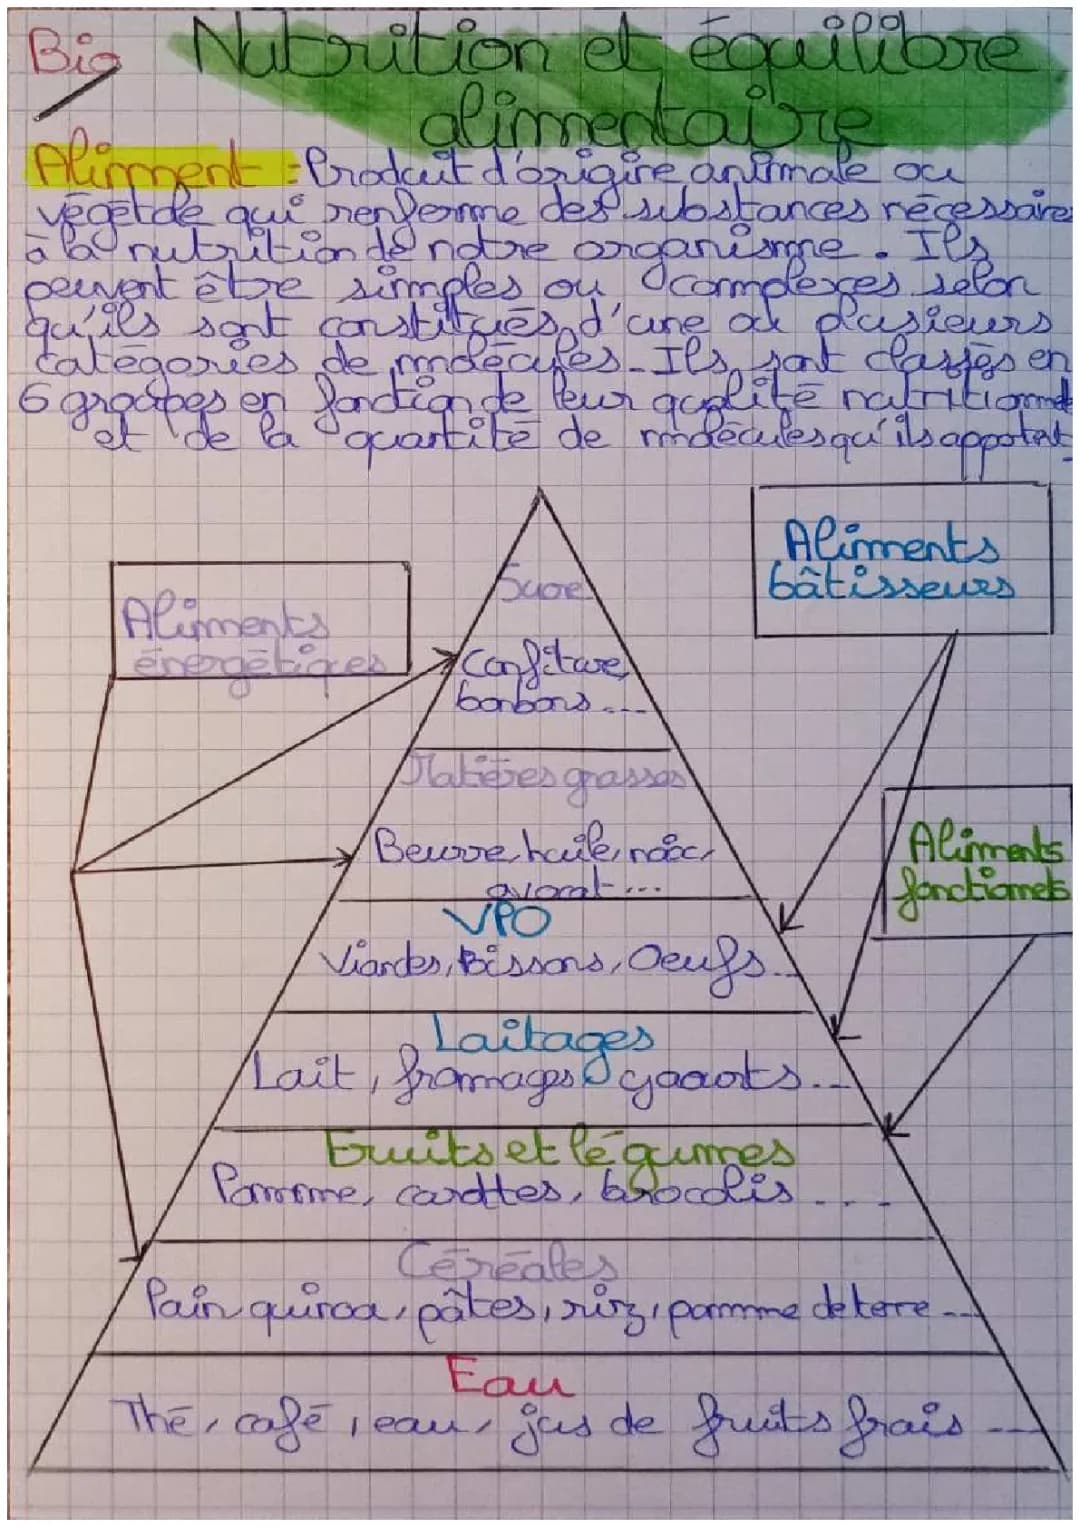 Bio Nutrition et équilibre
alimentaire
Aliment : Produit d'origine animale ou
végétale qui renferme des substances nécessaires
à la nutrition de notre organisme. Ils
peuvent être simples ou complexes selon
qu'ils sont constitués d'une ou plusieurs
catégories de molécules. Ils sont classés en
6 groupes en fonction de leur qualité nutritionnel
et de la quantité de molécules qu'ils apportent
Aliments
bâtisseurs
Aliments
énergétiques
Sucre
Confiture,
bonbons...
Matières grasses
Beurre, huile, noix,
avocat...
Aliments
fonctionnels
VPO
Viandes, Poissons, Oeufs...
Laitages
Lait, fromages, yaourts...
Fruits et légumes
Pomme, carottes, brocolis...
Céréales
Pain, quinoa, pâtes, riz, pomme de terre...
Eau
Thé, café, eau, jus de fruits frais...